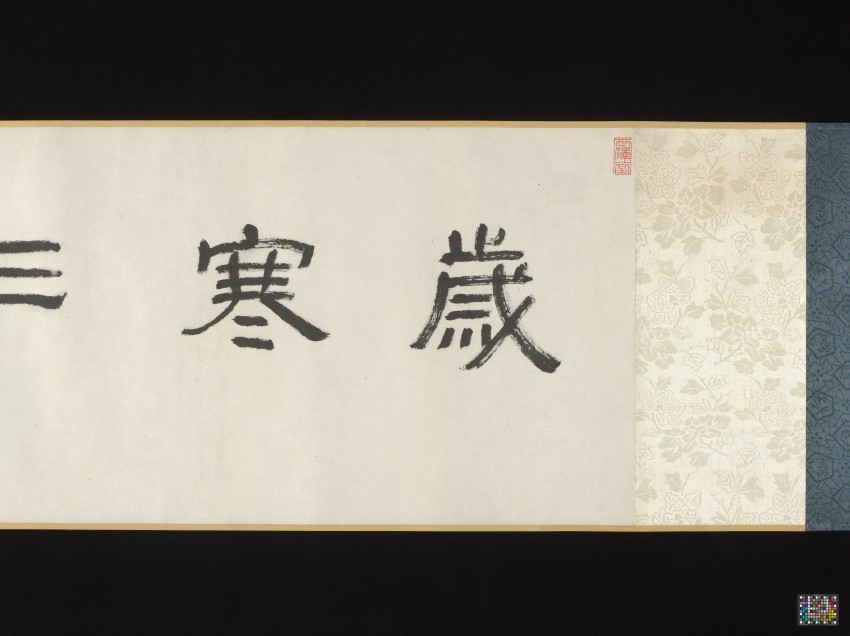 歲寒三